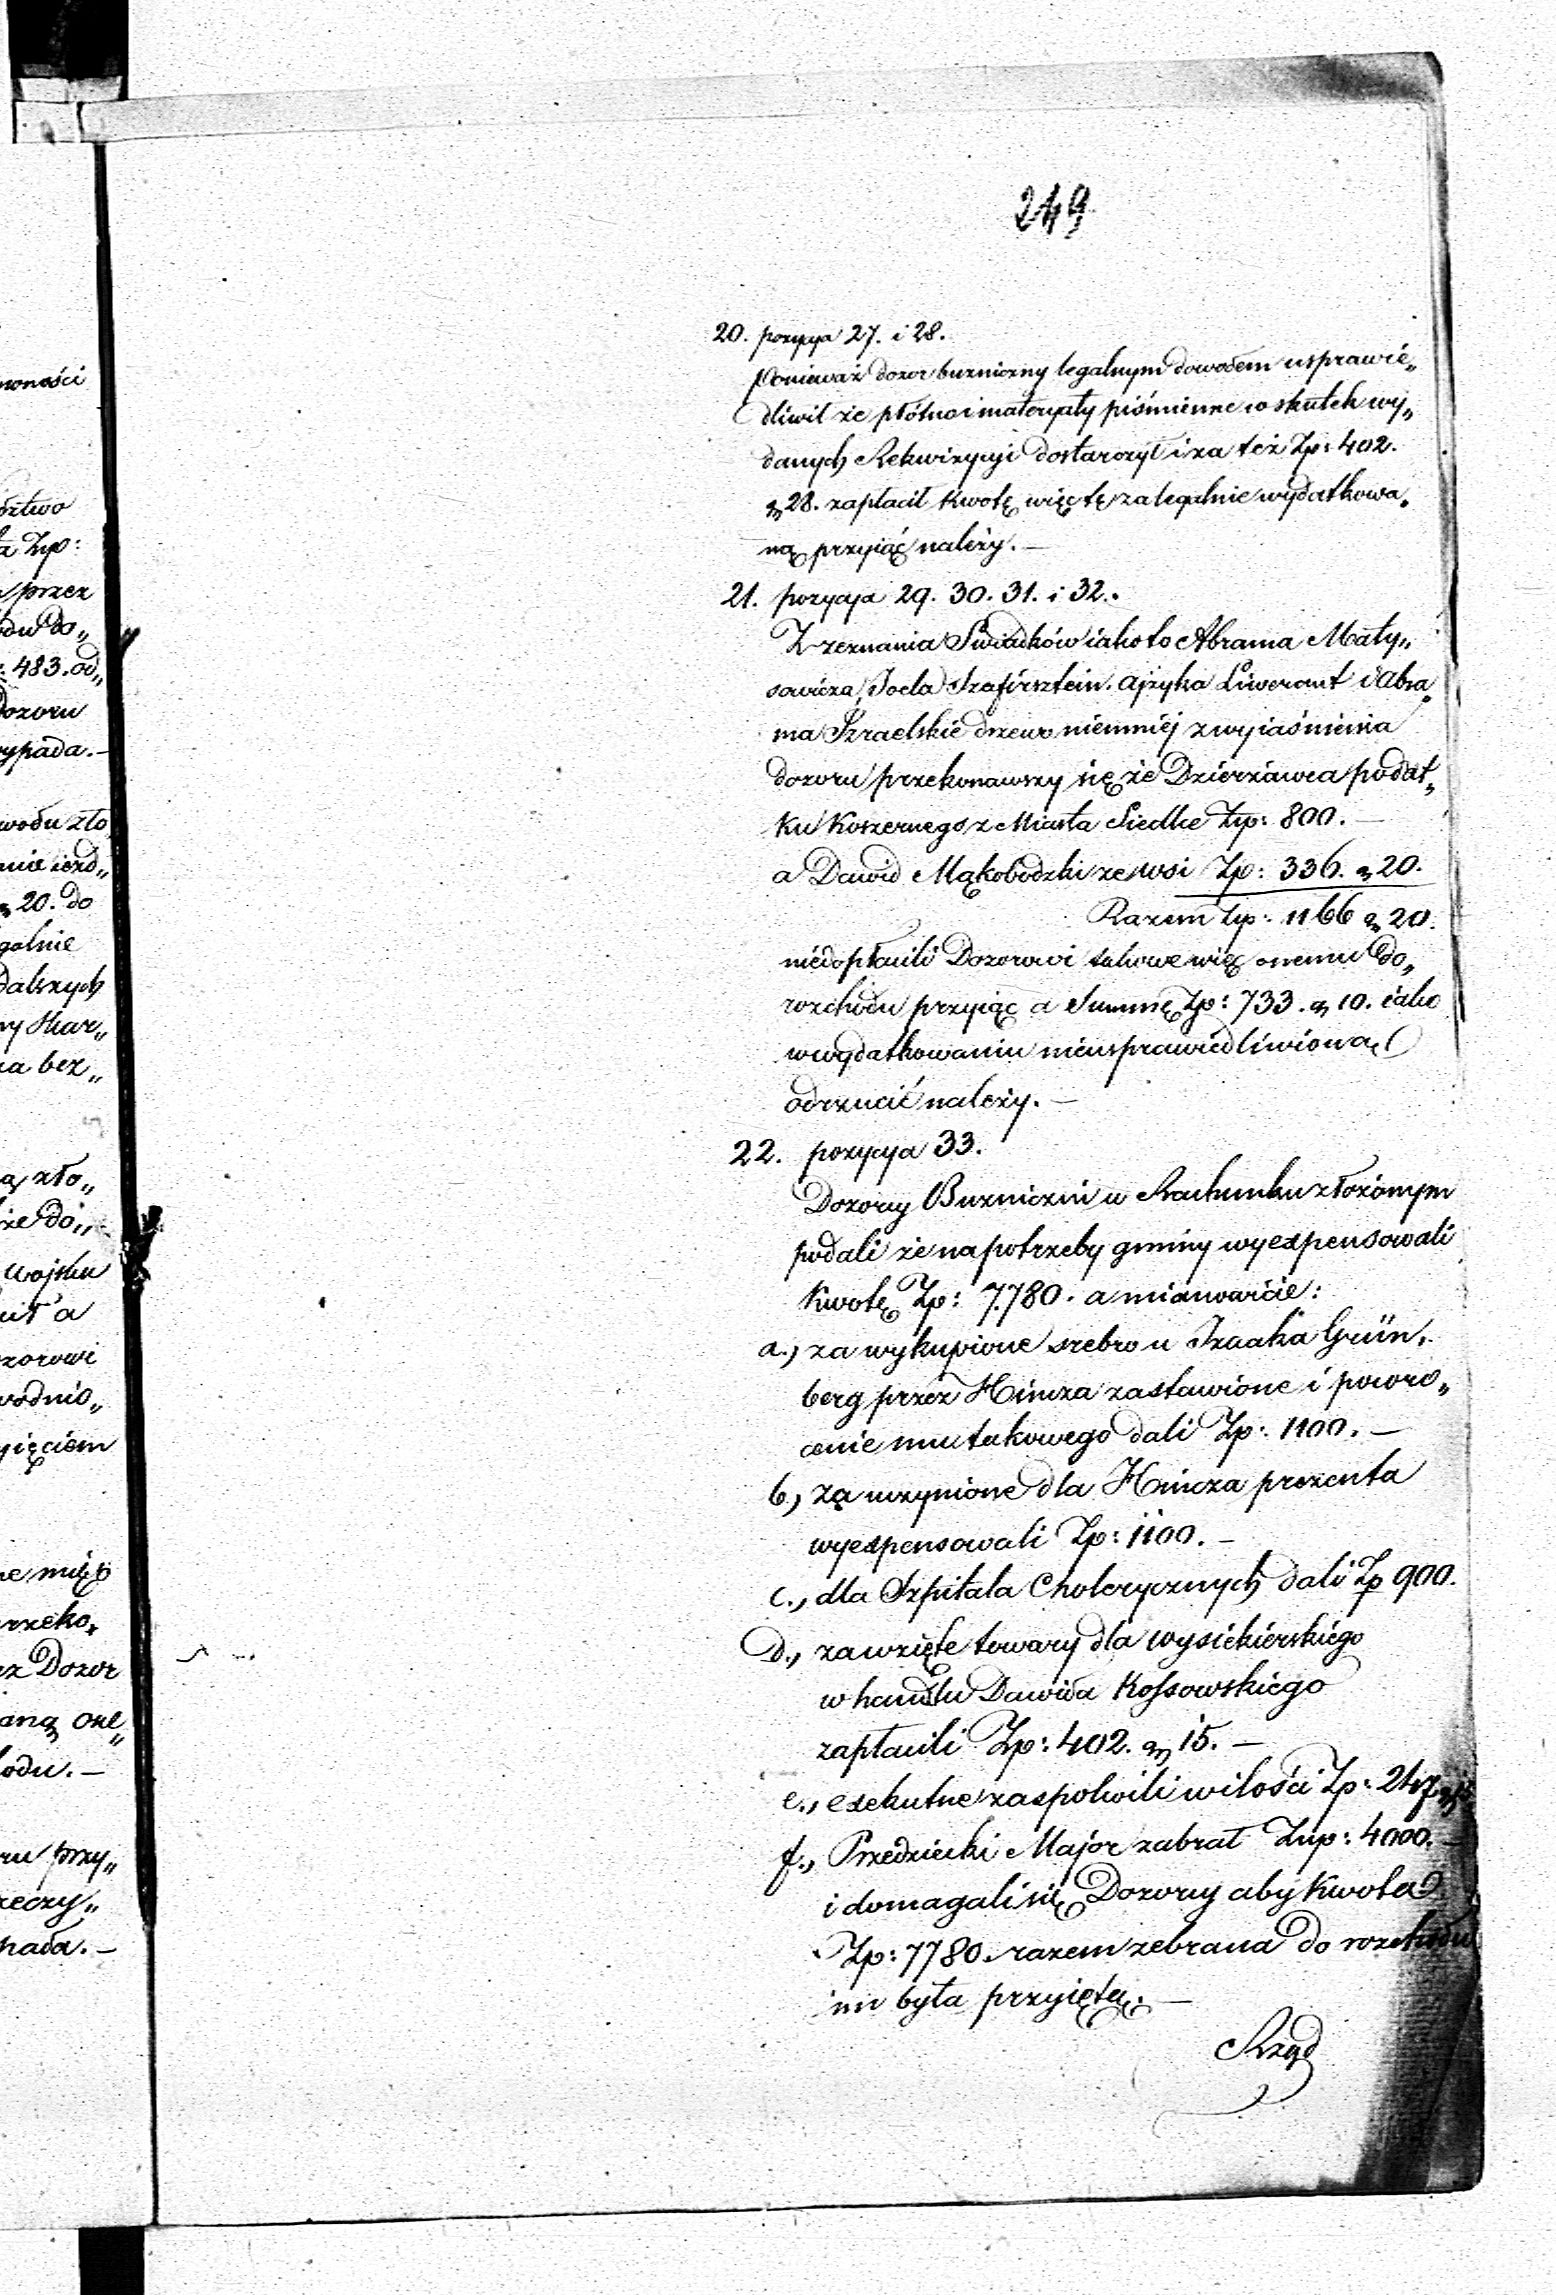 249
20. pozycya 27. i 28.
Ponieważ dozor buzniczny legalnym dowodem usprawie„
dliwił że płótno i materyały piśmienne w skutek wy„
danych Rekwizycyi dostarczył i za też Zp: 402.
gr 28. zapłacił kwotę więc tę za legalnie wydatkowa„
ną przyiąć należy. —
21. pozycja 29. 30. 31. i 32.
Z zeznania Swiadków iako to Abrama Maty„
sowicza, Joela Szafirsztein. Ajzyka Liwerant i Abra„
ma Izraelskie drzewo niemniej z wyiaśnienia
dozoru przekonawszy się że Dzierżawca podat„
ku Koszernego z Miasta Siedlce Zp: 800. —
a Dawid Mąkobodzki ze wsi Zp: 336. gr 20.
Razem Zp: 1166 gr 20.
niedopłacili Dozorowi takowe więc onemu do„
rozchodu przyiąc a Summę Zp: 733. gr 10. iako
w wydatkowaniu nieusprawiedliwioną
odrzucić należy. —
22. pozycya 33.
Dozory Buzniczni w Rachunku złożonym
podali że na potrzeby gminy wyexpensowali
kwotę Zp: 7780. a mianowicie:
a., za wykupione srebro u Izaaka Grün„
berg przez Hincza zastawione i powro„
cenie mu takowego dali Zp: 1100. —
b., za uczynione dla Hincza prezenta
wyexpensowali Zp: 1100. —
c., dla Szpitala Cholerycznych dali Zp 900.
d., za wzięte towary dla Wysiekierskiego
w handlu Dawida Kossowskiego
zapłacili Zp: 402. gr 15. —
e., exekutne zaspokoili wilości Zp: 247
f., Przedziecki Major zabrał Zup: 4000. —
i domagali się Dozory aby kwota
Zp: 7780. razem zebrana do rozchodu
im była przyiętą. —
Rząd